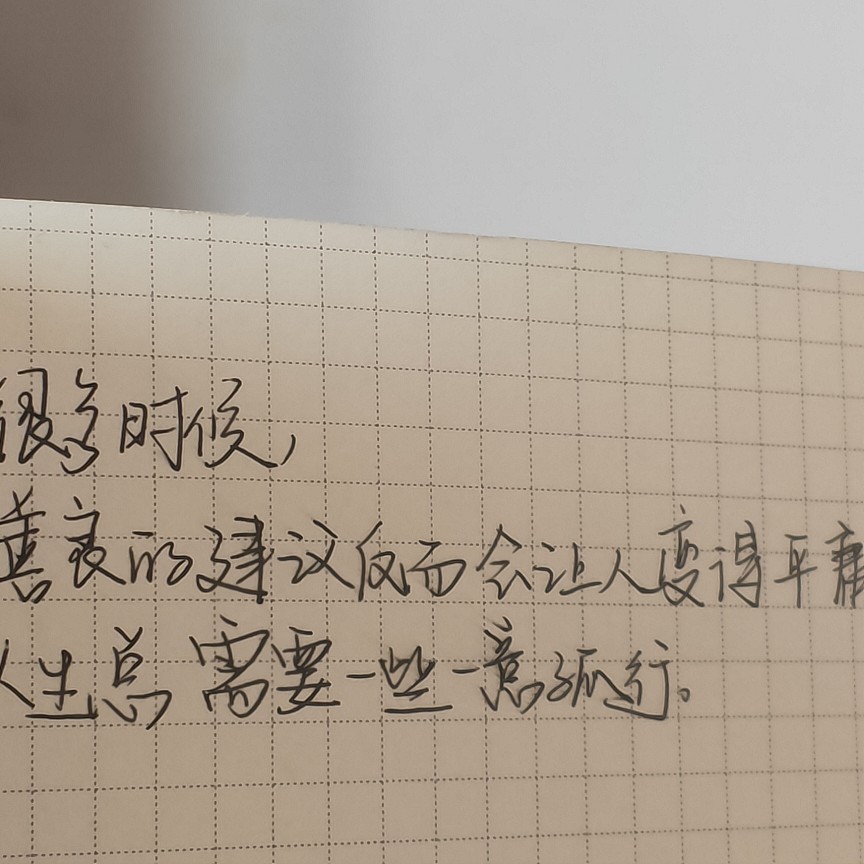 很多时候，
善良的建议反而会让人变得平庸
人生总需要一些一意孤行。